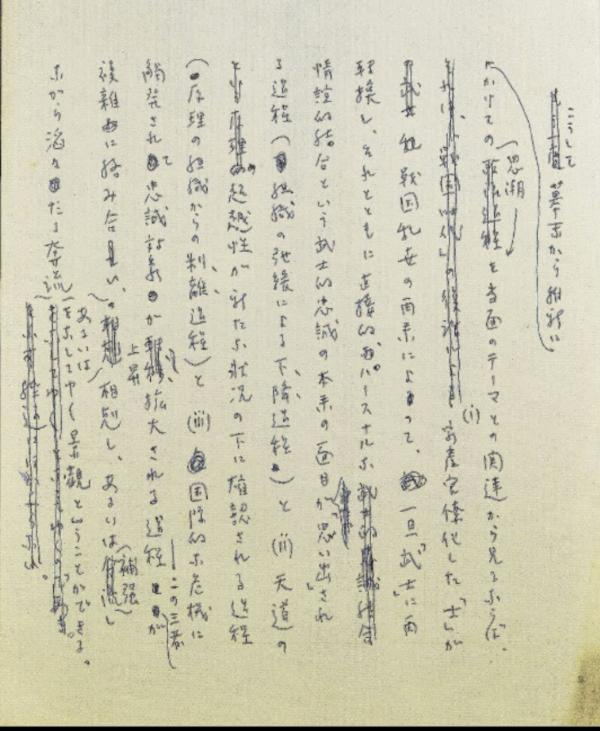 こうして
幕末から維新に
かけての思潮を当面のテーマとの関連から見るならば、
(i) 家産官僚化した「士」が
戦国乱世の再来によって、一旦「武士」に再
転換し、それとともに直接的パースナルな
情誼的結合という武士的忠誠の本来の面目が思い出され
る過程(組織の弛緩による下降過程)と (ii) 天道の
超越性が新たな状況の下に確認される過程
(原理の組織からの剥離過程)と (iii) 国際的な危機に
触発されて忠誠対象が上昇拡大される過程 この三者が
複雑に絡み合い、相剋し、あるいは補強し
ながら滔々たる奔流
をなしてゆく景観ということができる。